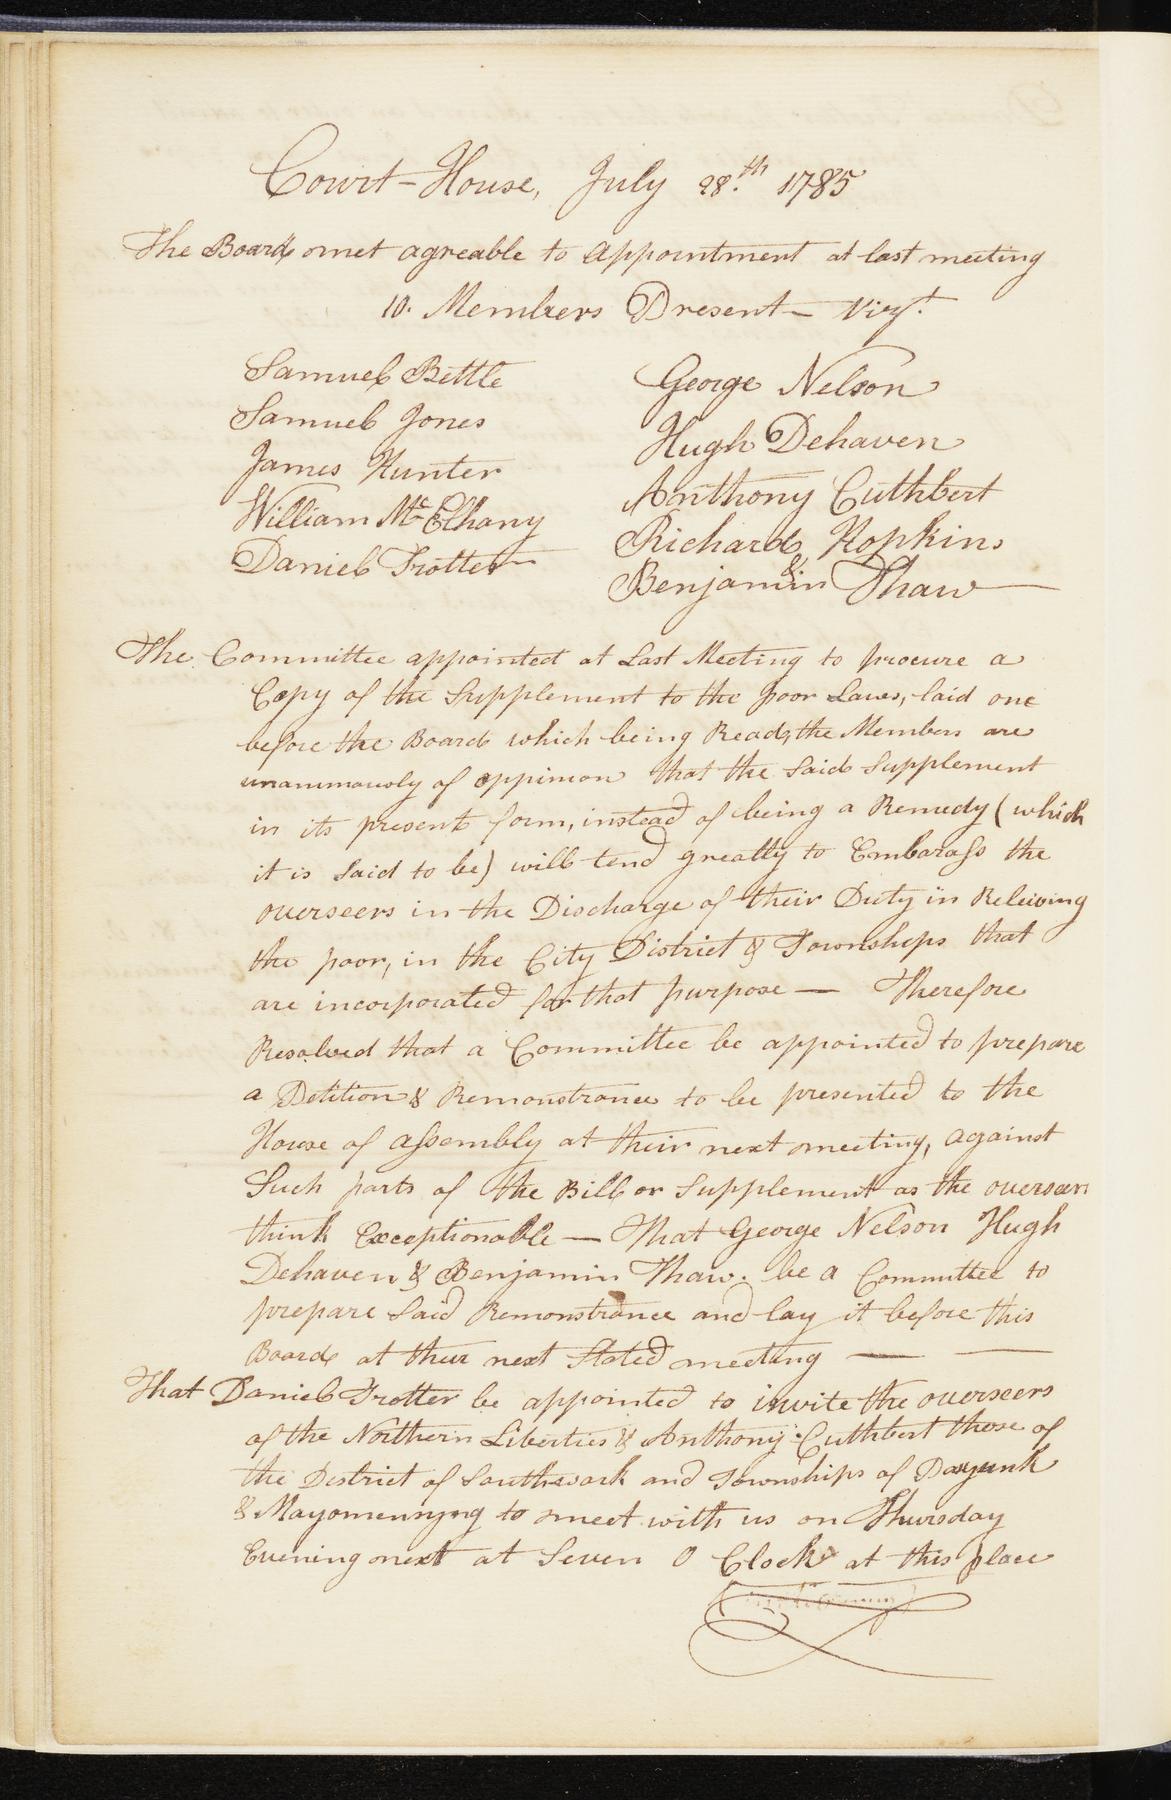 Court-House, July 28.th 1785
The Board met agreable to appointment at last meeting
10. Members Present — Vizt.
Samuel Bettle
Samuel Jones
James Hunter
William McElhany
Daniel Trotter
George Nelson
Hugh Dehaven
Anthony Cuthbert
Richard Hopkins
&
Benjamin Thaw
The Committee appointed at Last Meeting to procure a
Copy of the Supplement to the poor Laws, laid one
before the Board which being Read, the Members are
unanimously of oppinion that the Said Supplement
in its present form, instead of being a Remedy (which
it is Said to be) will tend greatly to Embarass the
overseers in the Discharge of their Duty in Releiving
the poor, in the City District & Townships that
are incorporated for that purpose — Therefore
Resolved that a Committee be appointed to prepare
a Petition & Remonstrance to be presented to the
House of assembly at their next meeting, against
Such parts of the Bill or Supplement as the overseers
think Exceptionable — That George Nelson Hugh
Dehaven & Benjamin Thaw. be a Committee to
prepare Said Remonstrance and lay it before this
Board at their next Stated meeting —
That Daniel Trotter be appointed to invite the overseers
of the Northern Liberties & Anthony Cuthbert those of
the District of Southwark and Townships of Pasyunk
& Moyomensyng to meet with us on Thursday
Evening next at Seven O Clock at this place